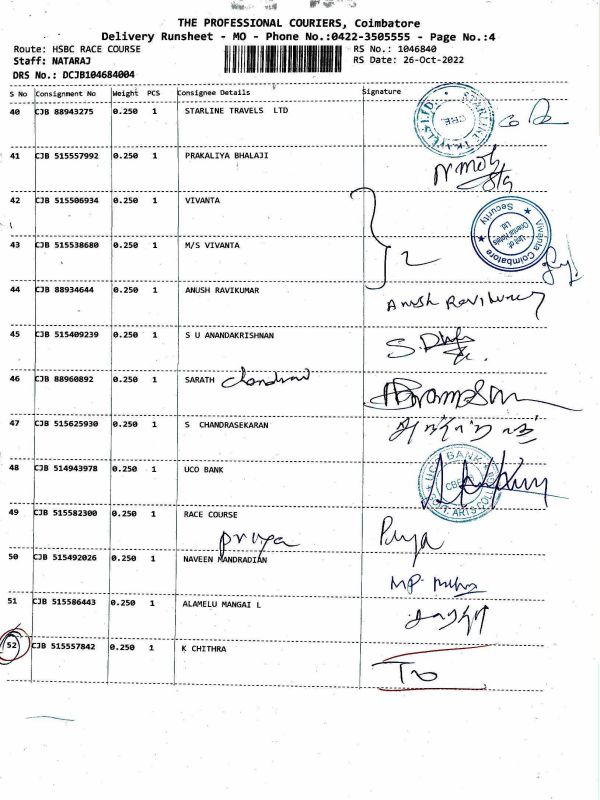 THE PROFESSIONAL COURIERS, Coimbatore
Delivery Runsheet - MO - Phone No.:0422-3505555 - Page No.:4
Route: HSBC RACE COURSE RS No.: 1046840
Staff: NATARAJ RS Date: 26-Oct-2022
DRS No.: DCJB104684004
S No Consignment No Weight PCS Consignee Details Signature
40 CJB 88943275 0.250 1 STARLINE TRAVELS LTD
41 CJB 515557992 0.250 1 PRAKALIYA BHALAJI
42 CJB 515506934 0.250 1 VIVANTA
43 CJB 515538680 0.250 1 M/S VIVANTA 2
Vivanta Coimbatore
Security
44 CJB 88934644 0.250 1 ANUSH RAVIKUMAR Anush Ravikumar
45 CJB 515409239 0.250 1 S U ANANDAKRISHNAN
46 CJB 88960892 0.250 1 SARATH
47 CJB 515625930 0.250 1 S CHANDRASEKARAN
48 CJB 514943978 0.250 1 UCO BANK
UCO BANK
49 CJB 515582300 0.250 1 RACE COURSE
priya Priya
50 CJB 515492026 0.250 1 NAVEEN MANDRADIAN
51 CJB 515586443 0.250 1 ALAMELU MANGAI L
52 CJB 515557842 0.250 1 K CHITHRA